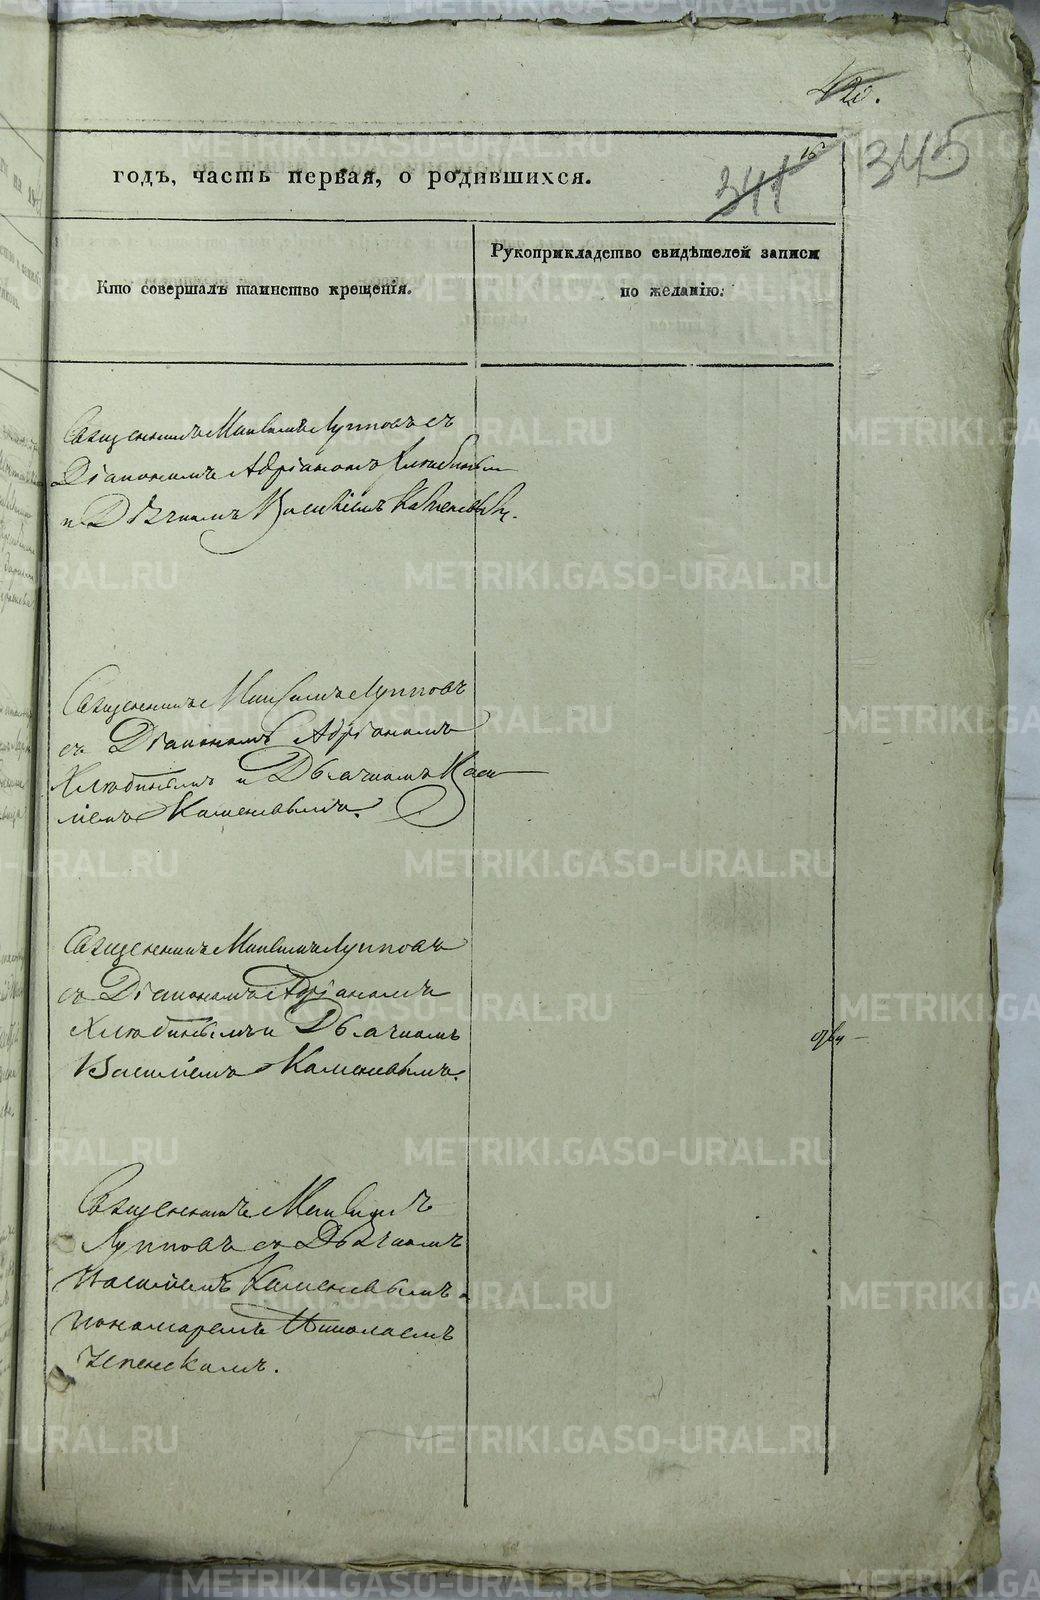 годъ, часть первая, о родившихся.
341
345
Кто совершалъ таинство крещенія.
Рукоприкладство свидѣтелей записи
по желанію.
Священникъ Максимъ Лупповъ съ
Діакономъ Адріаномъ Хлюбинымъ
и Дьячкомъ Василіемъ Каменевымъ.
Священникъ Максимъ Лупповъ
съ Діакономъ Адріаномъ
Хлюбинымъ и Дьячкомъ Васи
ліемъ Каменевымъ.
Священникъ Максимъ Лупповъ
съ Діакономъ Адріаномъ
Хлюбинымъ и Дьячкомъ
Василіемъ Каменевымъ.
Священникъ Максимъ
Лупповъ съ Дьячкомъ
Василіемъ Каменевымъ
пономаремъ Николаемъ
METRIKI.GASO-URAL.RU